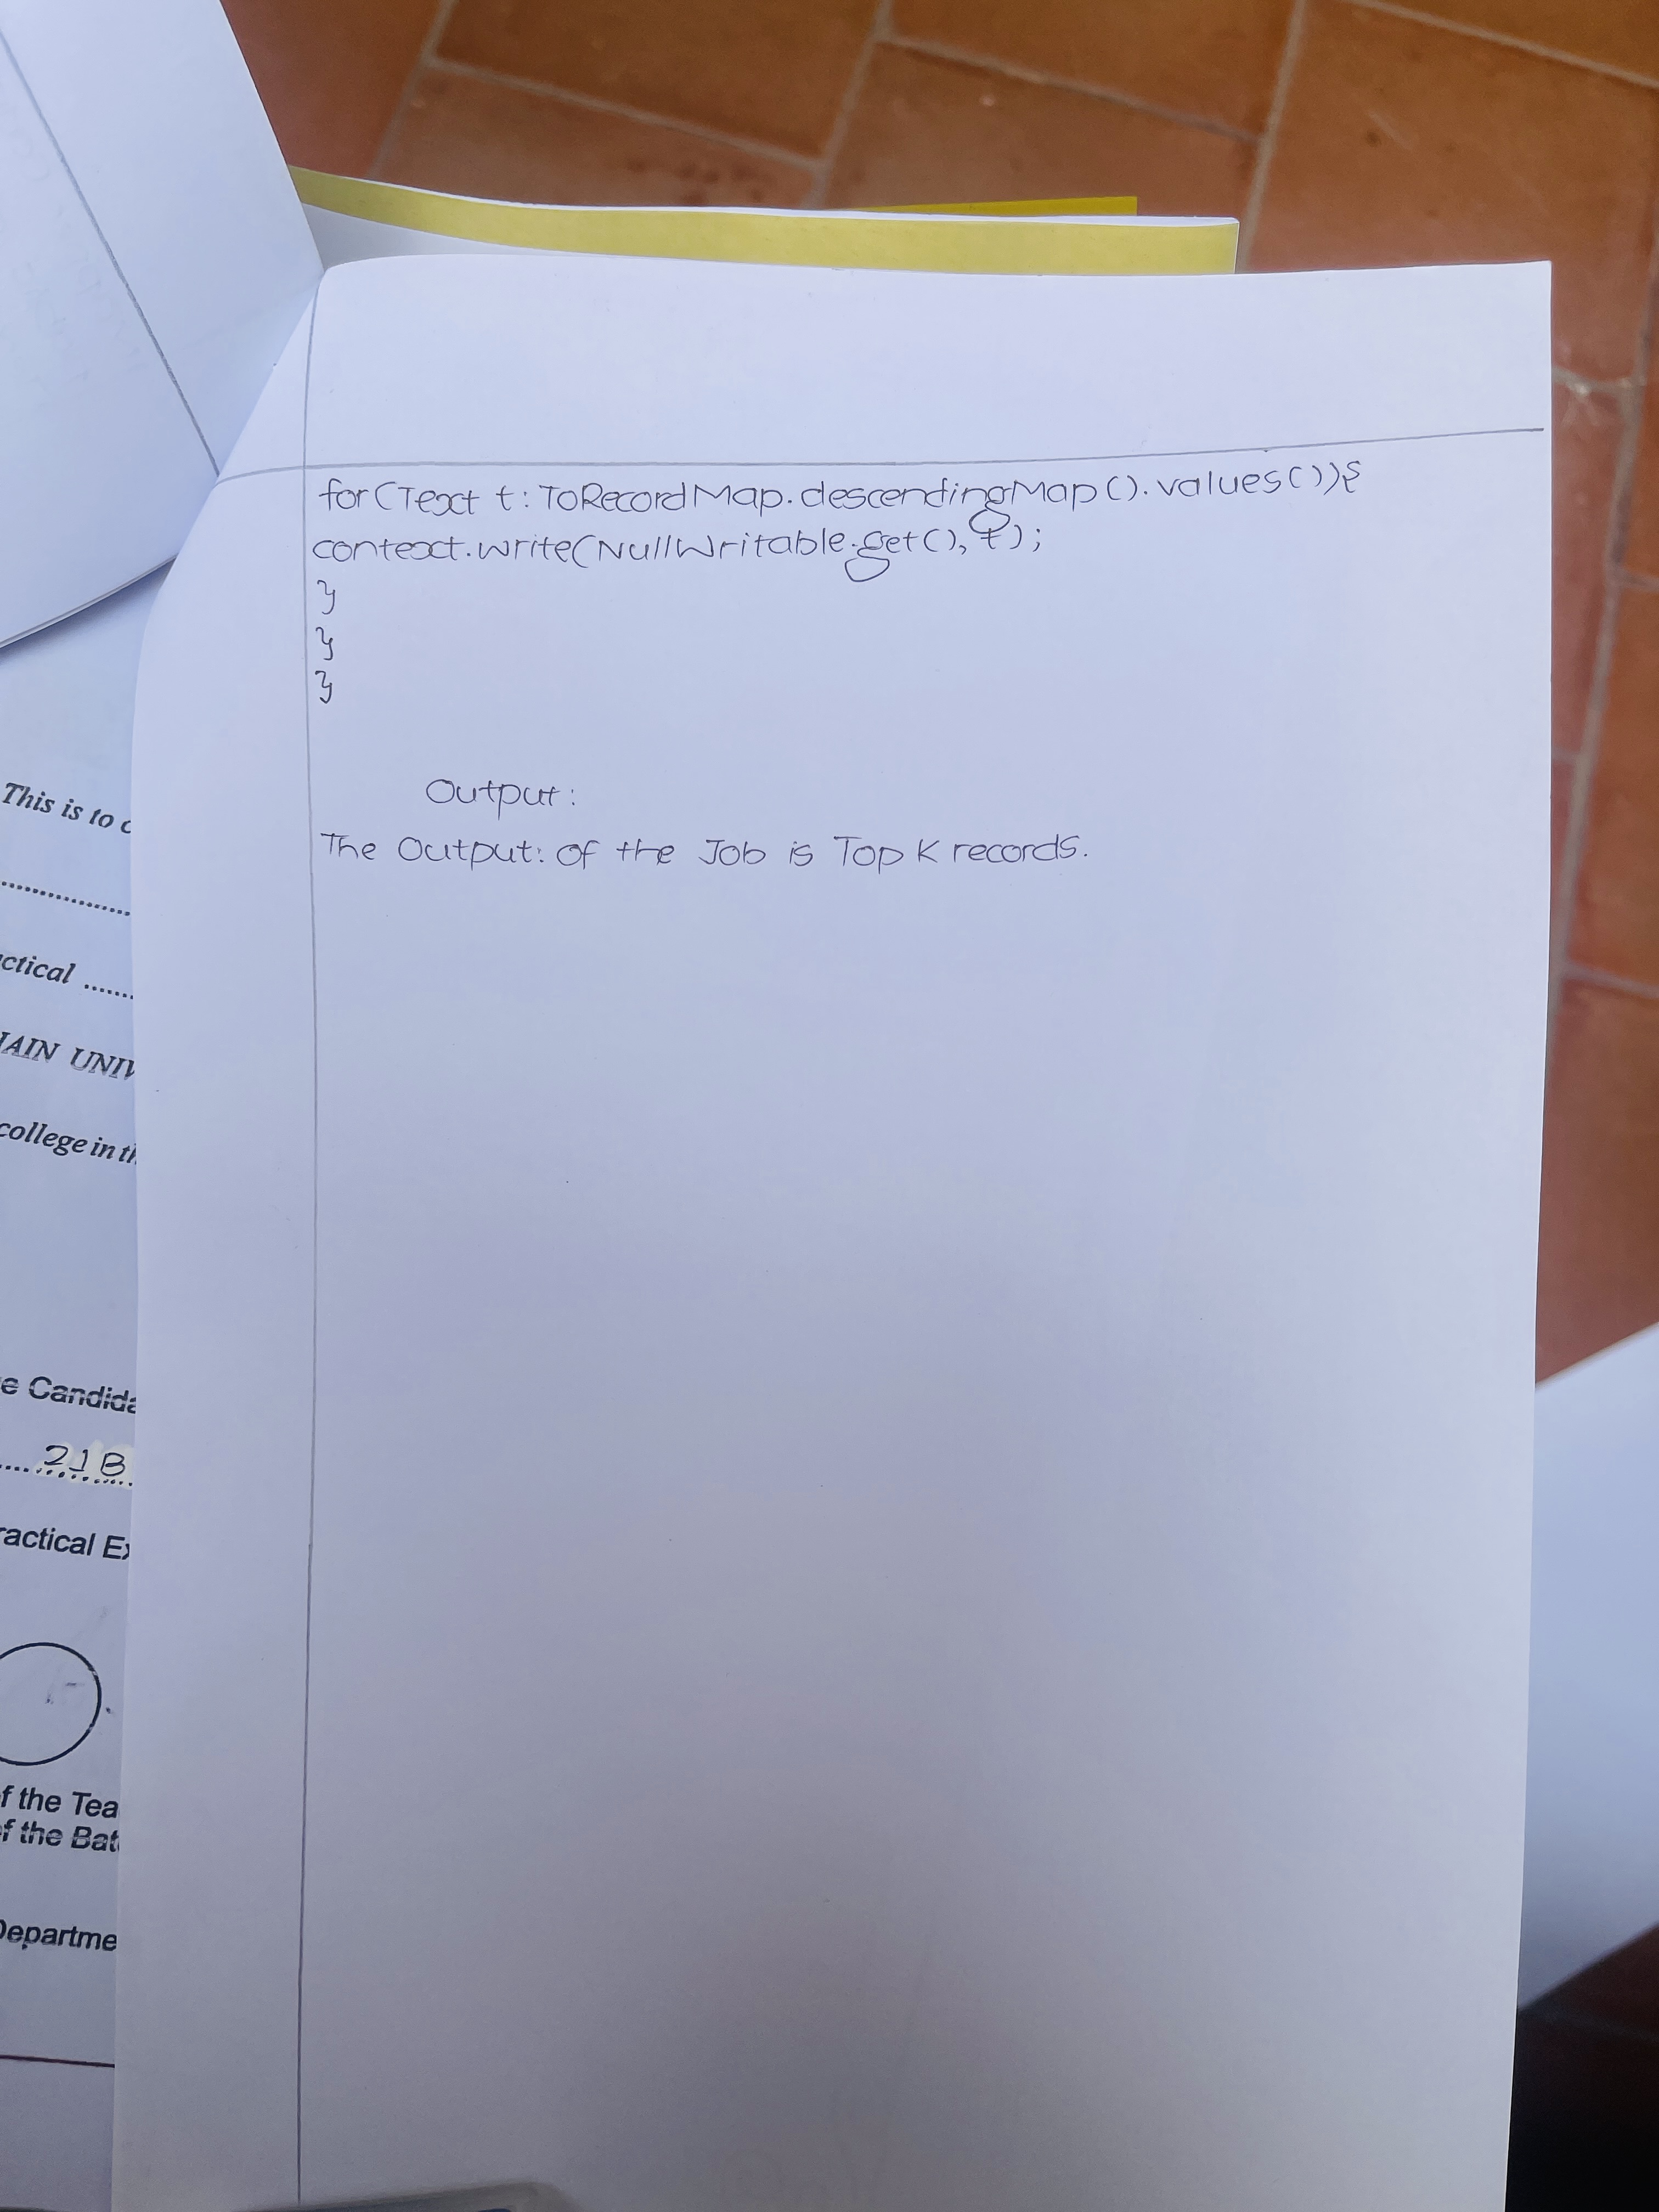 for(Text t: ToRecordMap.descendingMap().values()){
context.write(NullWritable.get(), t);
}
}
}
Output:
The Output: of the Job is Top K records.
This is to
ctical ......
JAIN UNIV
college in th
e Candida
.... 21B
ractical Ex
f the Tea
f the Bat
Departme